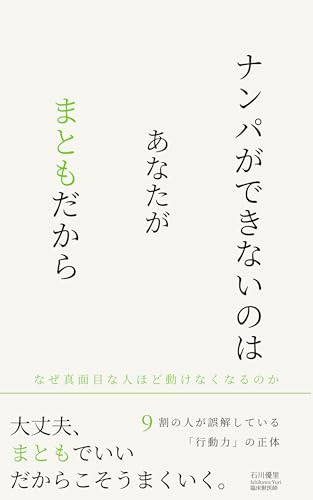 ナンパができないのは
あなたが
まともだから
なぜ真面目な人ほど動けなくなるのか
大丈夫、
まともでいい
だからこそうまくいく。
9割の人が誤解している
「行動力」の正体
石川優里
Ishikawa Yuri
臨床獣医師